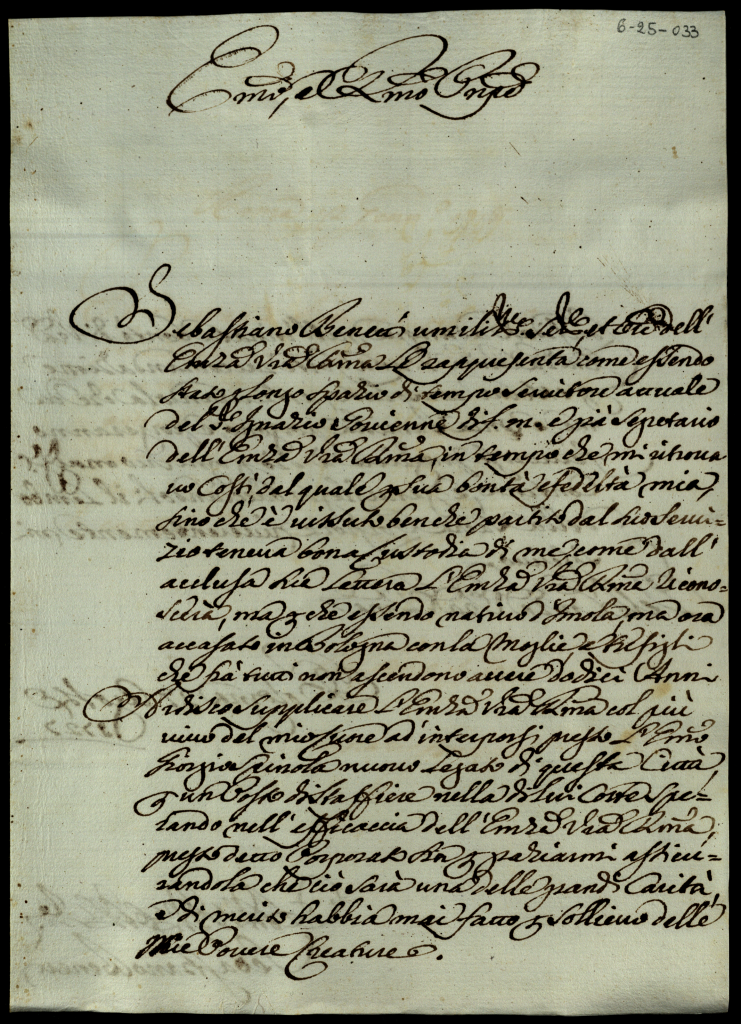 6-25-033
Emo, e Rmo Prpe
Sebastiano Benecci umilis Ser, et Ore dell'
Emza Vra Rma Le rappresenta come essendo
stato p longo spazio di tempo servitore attuale
del Sr Ignazio di f. m. e già Segretario
dell' Emza Vra Rma, in tempo che mi ritrova
vo Costi dal quale p sua bontà e fedeltà mia,
sino che è vissuto benche partito dal suo Servi=
zio teneva bona Custodia di me, come dall'
acclusa sua Lettera L'Emza Vra Rma ricono=
scerà, ma p che essendo nativo d'Imola, ma ora
accasato in Bologna con la Moglie e tre figli
che frà tutti non ascendono avere dodeci Anni
Ardisco supplicare L'Emza Vra Rma col più
vivo del mio Cuore ad' interporsi presso L'Emo
Giorgio Spinola nuovo Legato di questa Città,
p un Posto di staffiere nella di lui Corte spe=
rando nell' efficaccia dell' Emza Vra Rma,
presso detto Porporato p graziarmi assicu=
randola che ciò sarà una delle grandi Carità,
e di merito habbia mai fatto p sollievo delle
Mie Povere Creature.